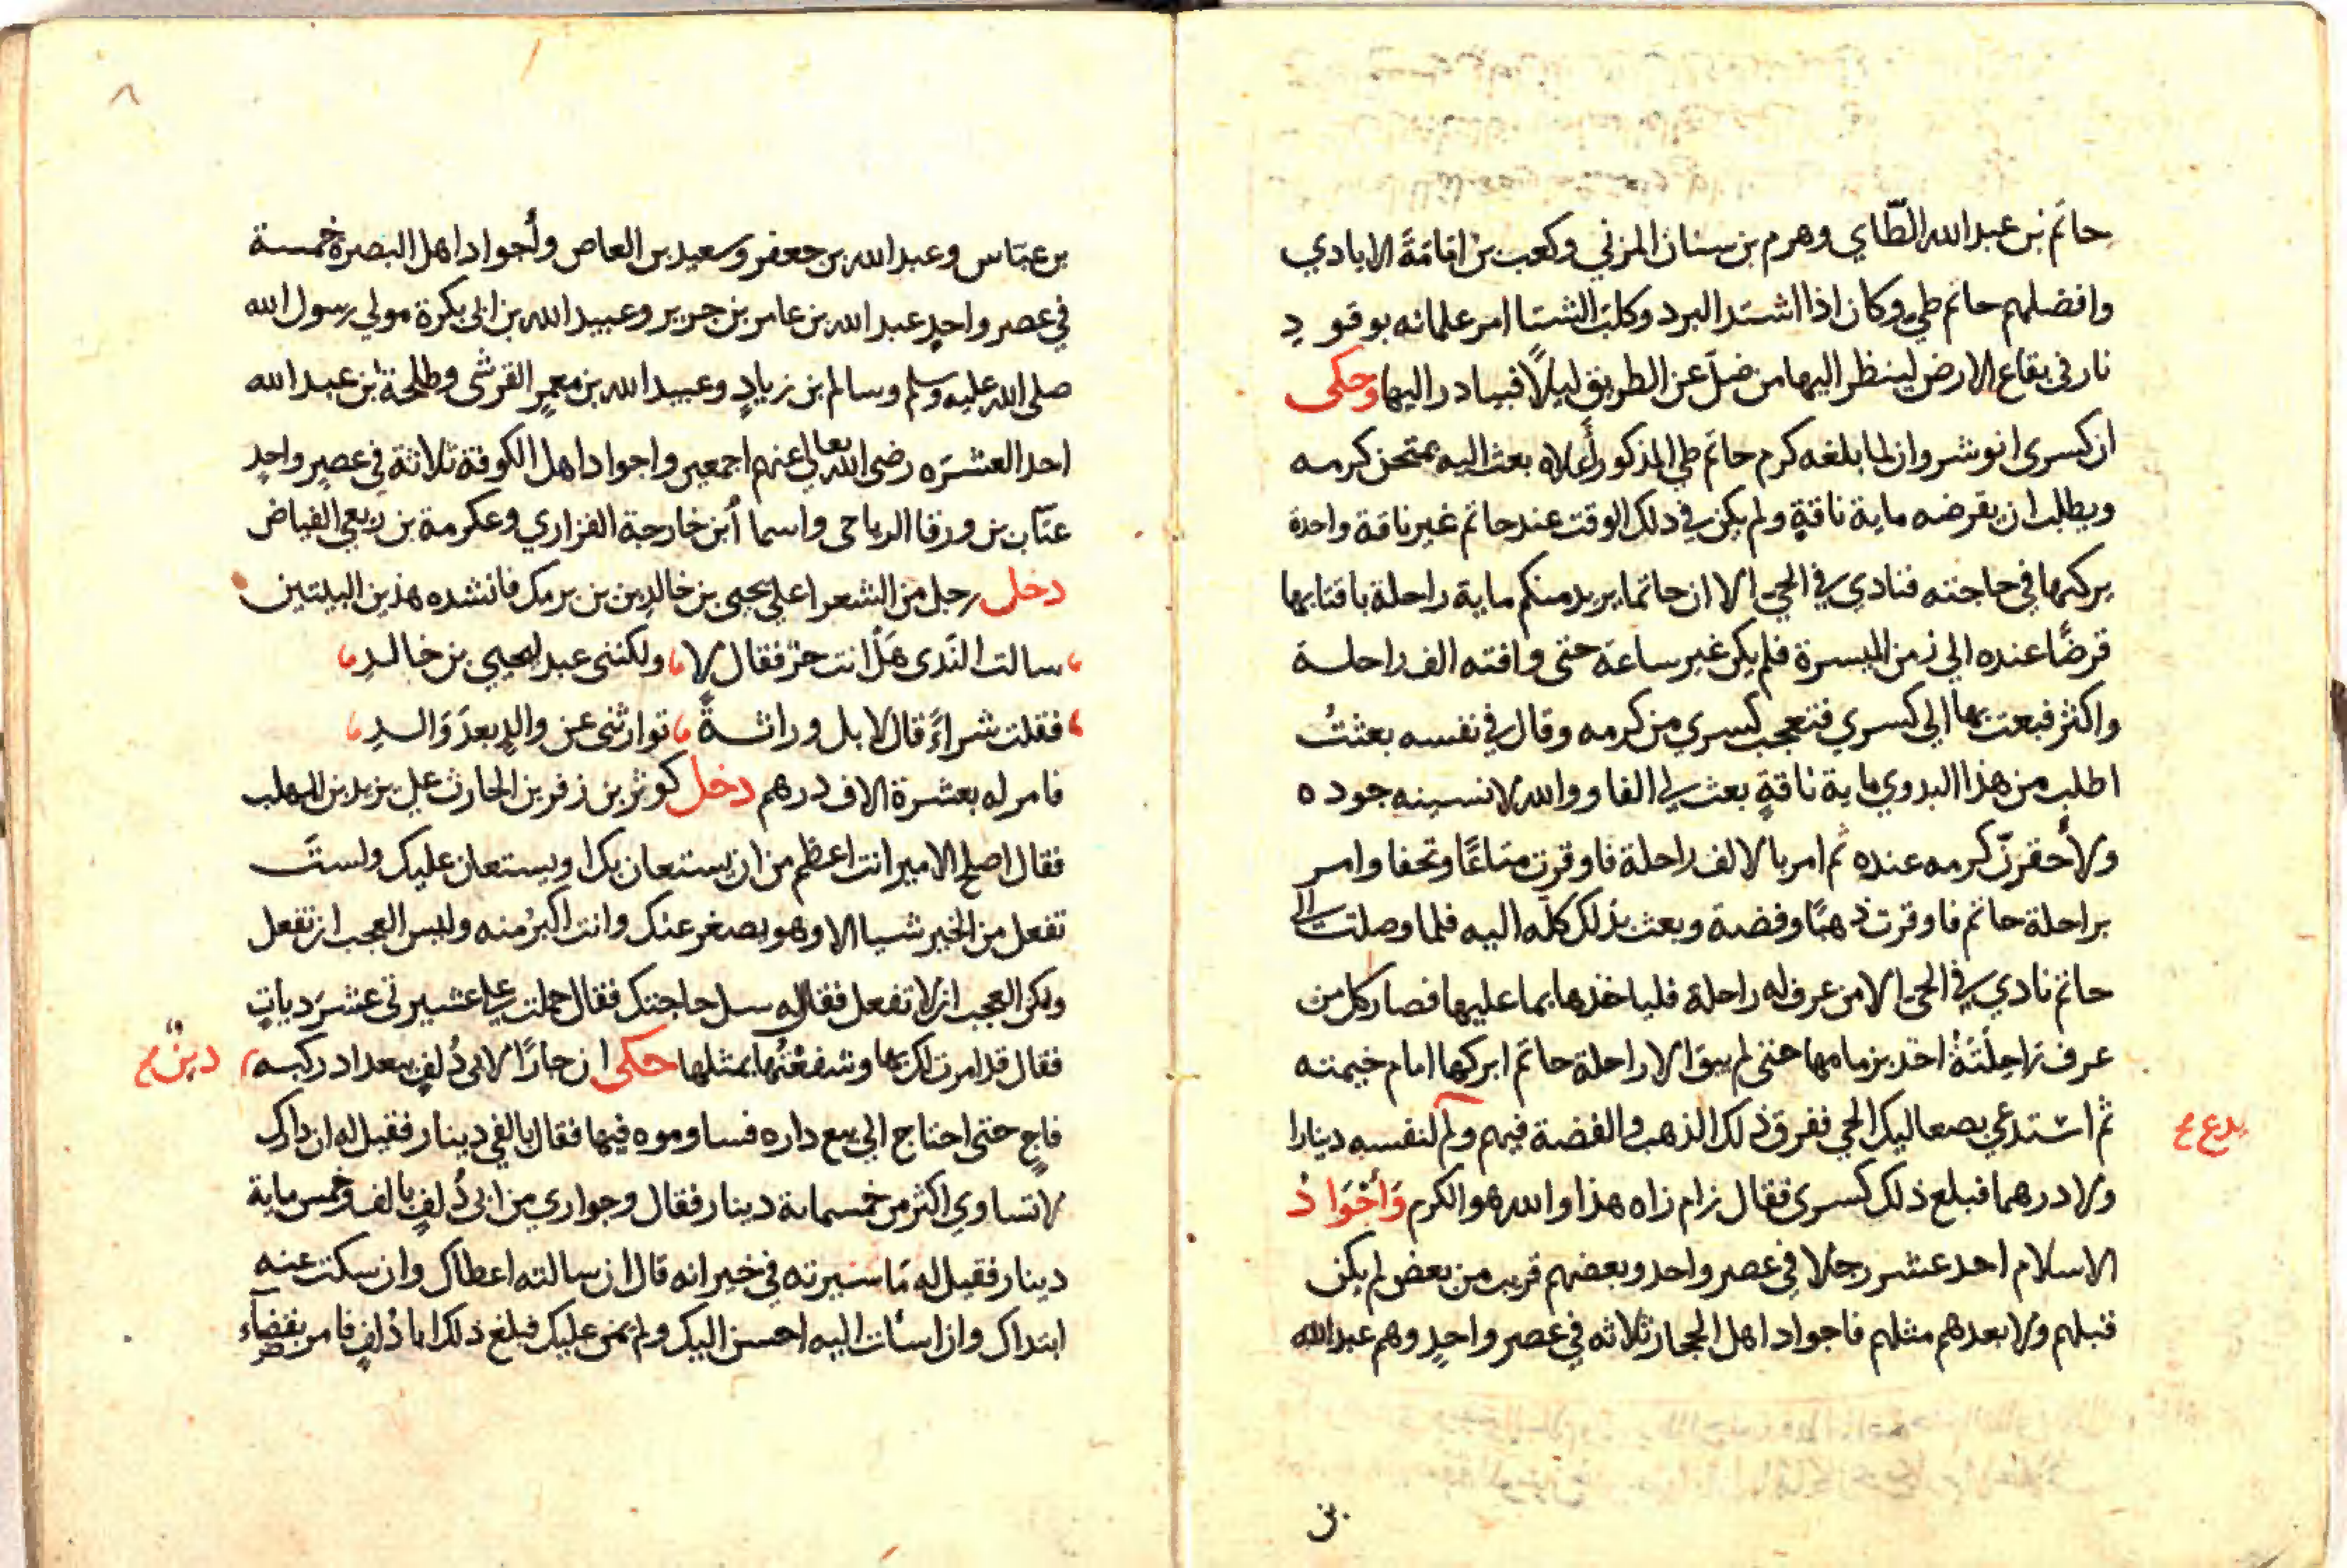 حاتم بن عبد الله الطّاي وهرم بن سنان المزني وكعب بن امامَةَ الايادي
وافضلهم حاتم طي وكان اذا اشتد البرد وكلبَ الشتا امر غلمانه بوقود
نار في بقاع الارض لينظر اليها من ضلّ عن الطريق ليلاً فيبادر اليها وحكى
ان كسرى انوشروان لما بلغه كرم حاتم طي المذكور أعلاه بعث اليه يمتحن كرمه
ويطلب ان يقرضه ماية ناقةٍ ولم يكن في ذلك الوقت عند حاتم غير ناقة واحدة
يركبها في حاجته فنادي في الحي الا ان حاتما يريد منكم ماية راحلة باقتابها
قرضًا عنده الي زمن الميسرة فلم يكن غير ساعة حتى وافته الف راحلة
واكثر فبعث بها الي كسري فتعجب كسري من كرمه وقال في نفسه بعثتُ
اطلب من هذا البدوي ماية ناقةٍ بعث لي الفا ووالله لانسينه جوده
ولأحقرنّ كرمه عنده ثم امر بالالف راحلة فاوقرت متاعًا وتحفا وامر
براحلة حاتم فاوقرت ذهبًا وفضة وبعث بذلك كله اليه فلما وصلت الي
حاتم نادي في الحي الا من عرف له راحلة فلياخذها بما عليها فصار كل من
عرف راحِلَتَهُ اخذ بزمامها حتى لم يبق الا راحلة حاتم ابركها امام خيمته
ثم استدعي بصعاليك الحي ففرق ذلك الذهب والفضة فيهم ولم لنفسه دينارا
يدع ع
ولا درهما فبلغ ذلك كسرى فقال زام زاه هذا والله هو الكرم وَأَجْوَادُ
الاسلام احد عشر رجلا في عصر واحد وبعضهم قريب من بعض لم يكن
قبلهم ولا بعدهم مثلهم فاجواد اهل الحجاز ثلاثه في عصر واحدٍ وهم عبد الله
بن
٨
بن عبّاس وعبد الله بن جعفر وسعيد بن العاص وأجواد اهل البصرة خمسة
في عصر واحدٍ عبد الله بن عامر بن جرير وعبيد الله بن ابي بكرة مولي رسول الله
صلى الله عليه وسلم وسالم ابن زيادٍ وعبيد الله بن معمرٍ القرشي وطلحة ابن عبد الله
احد العشره رضي الله تعالى عنهم اجمعين واجواد اهل الكوفة ثلاثة في عصرٍ واحدٍ
عتاب بن ورقا الرياحي واسما أبن خارجة الفزاري وعكرمة بن ربعي الفياض
دخل رجل من الشعرا على يحيى بن خالد بن بن برمك فانشده هذين البيتين
سالت الندى هَلْ انت حرّ فقال لا ولكنني عبد ليحيي بن خالدِ
فقلت شراءً قال لا بل وراثةً توارثني عن والدٍ بعدَ وَالدِ
فامر له بعشرة الاف درهم دخل كوثر بن زفر بن الحارث علي يزيد بن المهلب
فقال اصلح الامير انت اعظم من ان يستعان بك او يستعان عليك ولستَ
تفعل من الخير شيا الا وهو يصغر عنك وانت اكبر منه وليس العجب ان تفعل
ولكن العجب ان لا تفعل فقال له سل حاجتك فقال حملت علي عشيرتي عشر دياتٍ
فقال قد امرت لك بها وشفعْتُها بمثلها حكى ان جارًا لابي دُلفٍ ببغداد ركبه
دين ع
فاجٍ حتى احتاج الي بيع داره فساوموه فيها فقال بالفي دينار فقيل له ان دارك
لا تساوي اكثر من خمسماية دينار فقال وجواري من ابي دُلفٍ بالف وخمس ماية
دينار فقيل له ما سيرته في جيرانه قال ان سالته اعطاك وان سكت عنه
ابتداك وان اسات اليه احسن اليك ولم يمن عليك فبلغ ذلك ابا دُلفٍ فامر بقضآء